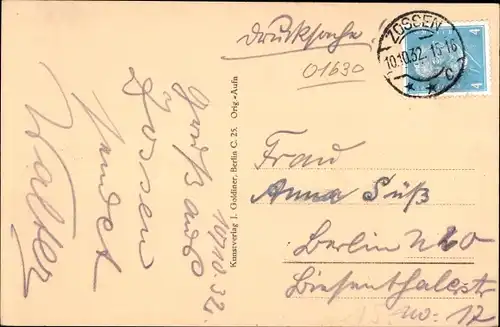 Drucksache
01630
ZOSSEN
10.10.32. 15-16
c
4
4
Gruß aus
Zossen
sendet
Walter
10/10.32.
Kunstverlag J. Goldiner, Berlin C. 25. Orig.-Aufn
Frau
Anna Süß
Berlin N20
Biesenthalerstr
no. 17